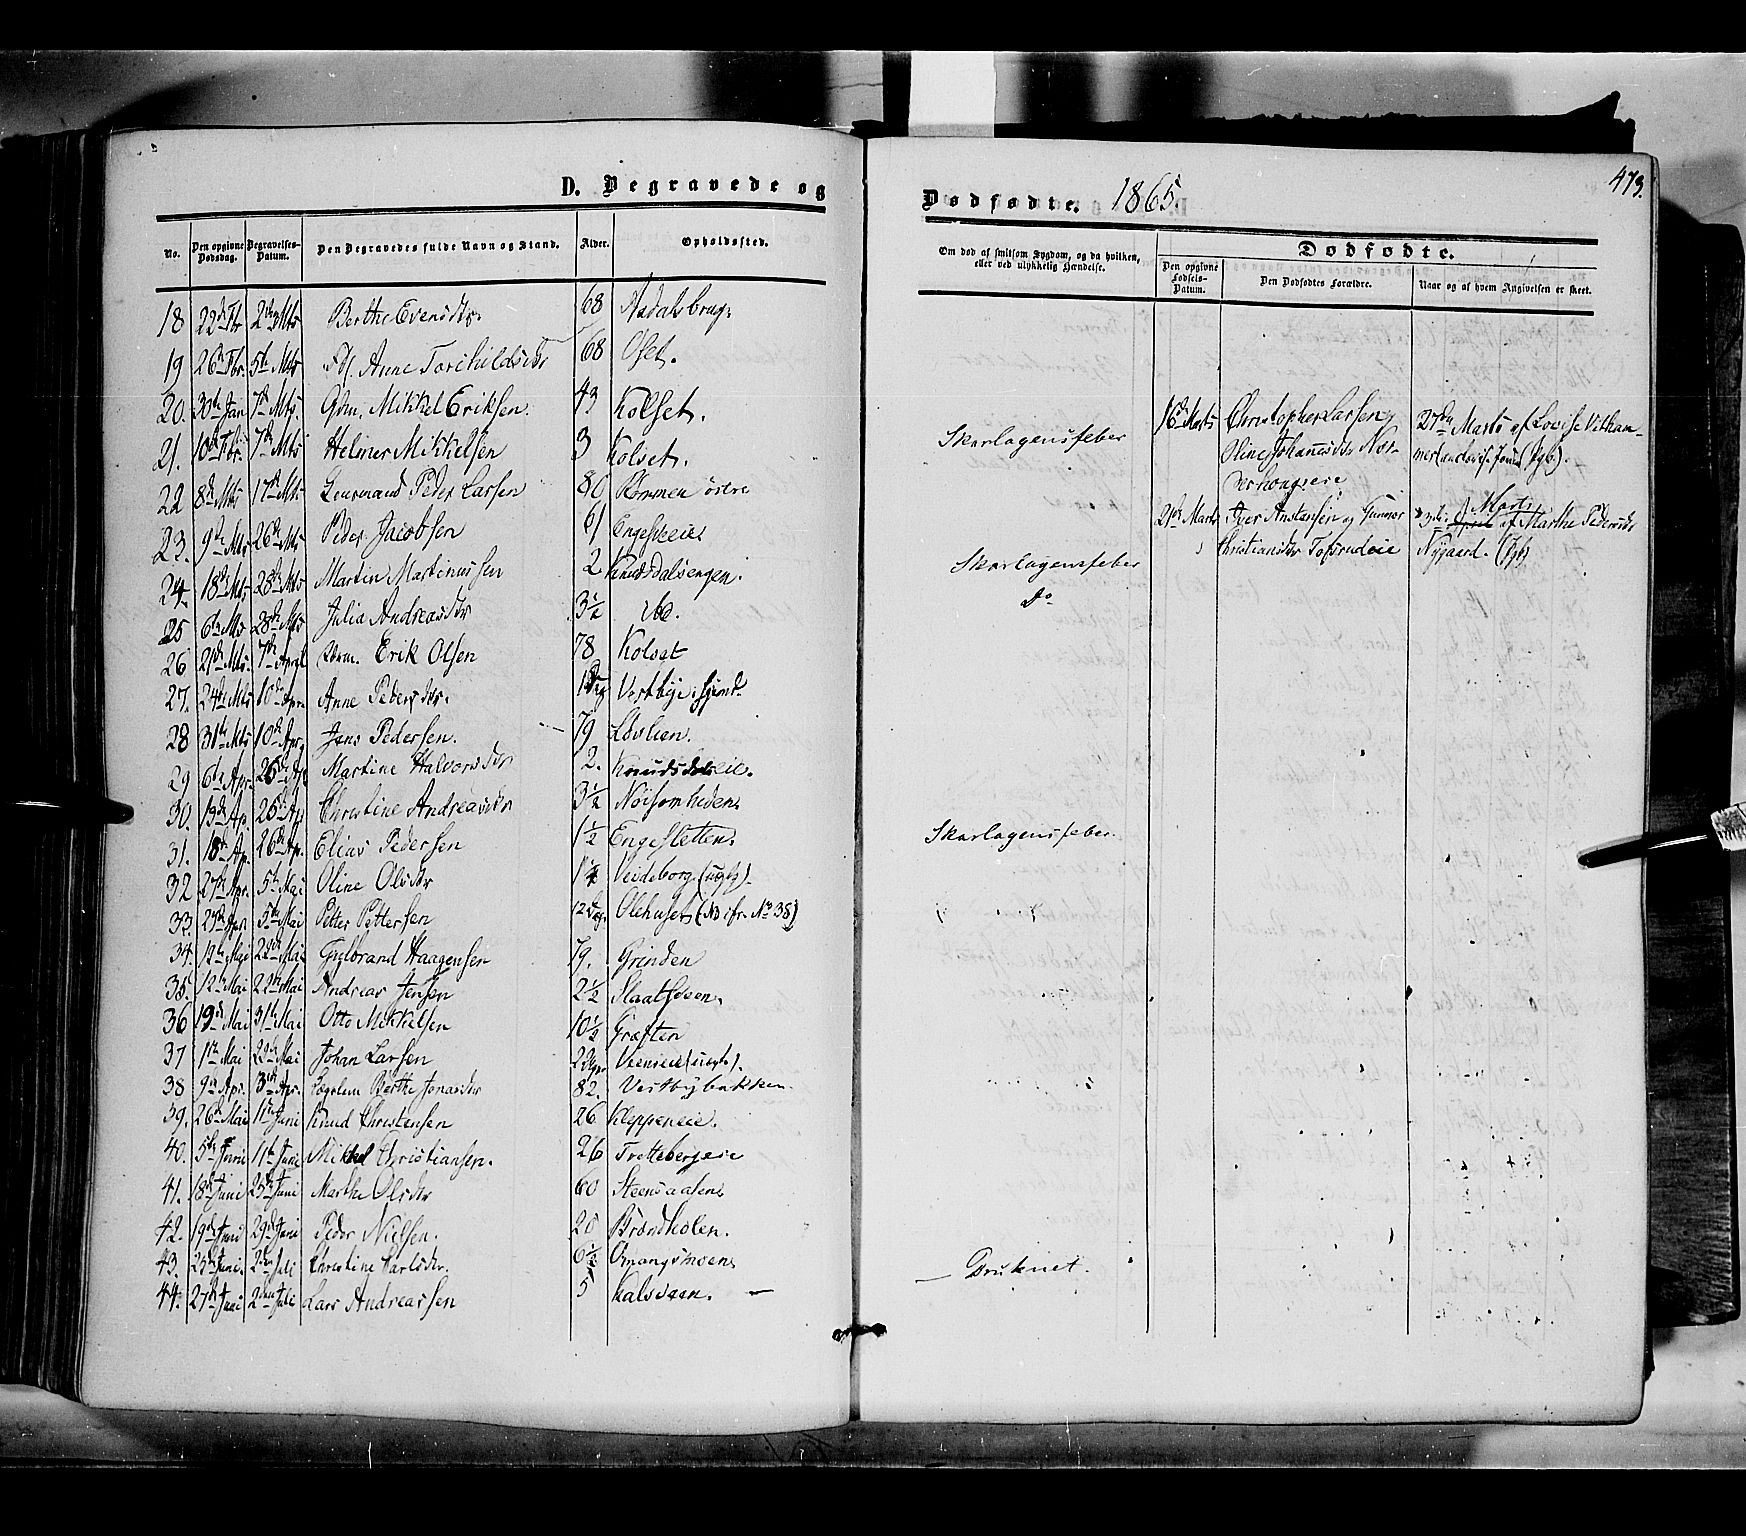 D. Begravede og
No. Den opgivne Dødsdag. Begravelses-Datum. Den Begravedes fulde Navn og Stand. Alder. Opholdssted.
18 22de Fbr 2den Mts Berthe Evensdtr. 68 Aadalsbrug.
19 26de Fbr. 5te Mts Anne Torchildsdtr 68 Oset.
20. 30te Jan 7de Mts. Gdm. Mikkel Eriksen. 43 Kolset.
21. 10de Fbr. 7de Mts Helmer Mikkelsen 3 Kolset.
22 8de Mts 17de Mts Peder Larsen 80 Rommen østre
23. 9de Mts 26de Mts Peder Jacobsen 61
24. 18de Mts 28de Mts Martin Martinussen 2 Knudsdalsengen.
25 6te Mts 28de Mts Julia Andreasdtr 3½
26 21de Mts. 7de April Erik Olsen 78 Kolset
27. 24de Mts 10de Apr. Anne Pedersdtr. Vestbye
28 31te Mts 10de Apr. Jens Pedersen. 79 Løvlien.
29 6te Apr. 26de Ap. Martine Halvorsdtr 2. Knudsdalseie.
30. 13de Ap. 26de Ap. Christine Andreasdtr 3½ Nøisomheden
31. 18de Ap. 26de Ap. Elias Pedersen 1½ Engesletten
32 27de Apr. 5te Mai Oline Olsdtr Veideborg (ugb).
33. 5te Mai Petter Pettersen 12 Dag. Olehuset (No 38)
34. 22de Mai Gulbrand Haagensen 79. Grinden
35. 12te Mai 22de Mai Andreas Jensen 2½
36 19de Mai 31te Mai Otto Mikkelsen 10½ Grøften
37 Mai Johan Larsen
38 9de Apr. Apr. Lægslem Berthe Jonasdtr 82. Vestbybakken.
39. 26de Mai 11te Juni Knud Christensen 26 Kleppeneie.
40. 5te Juni 11te Juni Mikkel Christiansen. 26 Trettebergeie
41. 18de Juni 25de Juni Marthe Olsdtr 60
42. 19de Juni 29de Juni Peder Nielsen. 20 Brændholen.
43. 25de Juni. 2den Juli Christine Karlsdtr. 6½ Omangsmoen
44. 27de Juni 2den Juli Lars Andreassen 5 Kalsveen. —
Dødfødte. 1865
473.
Om død af smitsom Sygdom, og da hvilken, eller ved ulykkelig Hændelse.
Dødfødte.
Den opgivne Fødsels-Datum. Den Dødfødtes Forældre. Naar og af hvem Angivelsen er skeet.
Skarlagensfeber
16de Marts Christopher Larsen og
Oline Johannesdtr
27de Marts af Lovise
21de Marts Iver Anstensen og Gunnor
Christiansdtr Tofsrudeie
Marts
af Marthe Pedersdtr
Nygaard. (Jgb)
Skarlagensfeber
Do
Skarlagensfeber.
— Druknet.